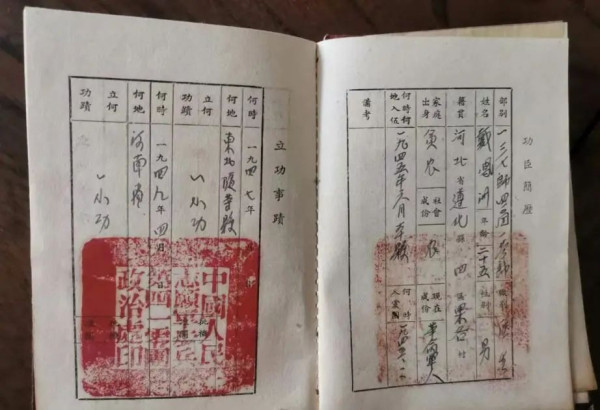 功臣簡歷
部别 一三七師四
姓名 年齡 二十五 性别 男
籍貫 河北省遵化縣四區 村
家庭出身 貧農 社會成份 農 現在成份 革命軍人
何時何地入伍 一九四五年六月本縣 何時入黨團
備考
立功事蹟
何時 一九四七年
何地 東北
立何功蹟 一小功
何時 一九四九年四月
何地 河南省
立何功蹟 一小功
中國人民
志願軍
第四一一團
政治處印